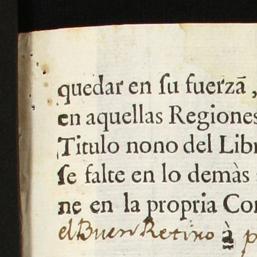 quedar en ſu fuerzā,
en aquellas Regiones
Titulo nono del Libr
ſe falte en lo demàs
ne en la propria Con
el Buen Retiro à p